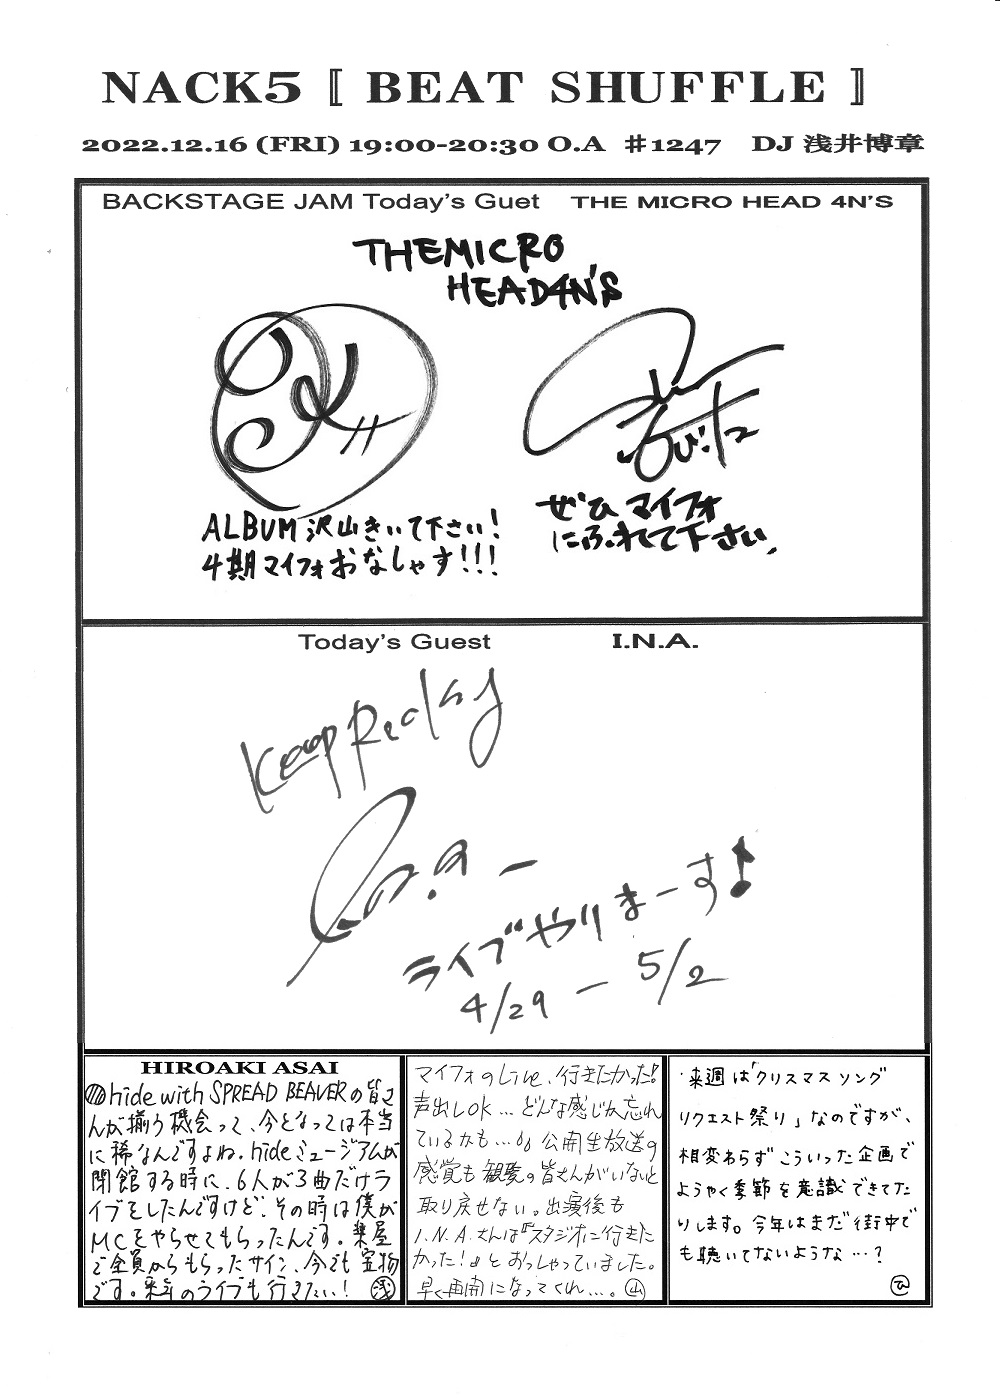 NACK5 〚 BEAT SHUFFLE 〛
2022.12.16 (FRI) 19:00-20:30 O.A ♯1247 DJ 浅井博章
BACKSTAGE JAM Today's Guet THE MICRO HEAD 4N'S
THEMICRO
HEAD4N'S
ALBUM 沢山きいて下さい!
4期マイフォおなしゃす!!!
ぜひ マイフォ
にふれて下さい。
Today's Guest I.N.A.
Keep Rocking
I.N.A.
ライブやりまーす♪
4/29 - 5/2
HIROAKI ASAI
hide with SPREAD BEAVERの皆さ
んが揃う機会って、今となっては本当
に稀なんですよね。hideミュージアムが
閉館する時に、6人が3曲だけライ
ブをしたんですけど、その時は僕が
MCをやらせてもらったんです。楽屋
で全員からもらったサイン、今でも宝物
です。来年のライブも行きたい! 浅
マイフォのLive、行きたかった!!
声出しOK…どんな感じか忘れ
ているかも…。公開生放送の
感覚も観覧の皆さんがいないと
取り戻せない。出演後も
I.N.A.さんは『スタジオに行きた
かった!』とおっしゃっていました。
早く再開になってくれ…。山
来週は「クリスマスソング
リクエスト祭り」なのですが、
相変わらずこういった企画で
ようやく季節を意識できてた
りします。今年はまだ街中で
も聴いてないような…?
ひ